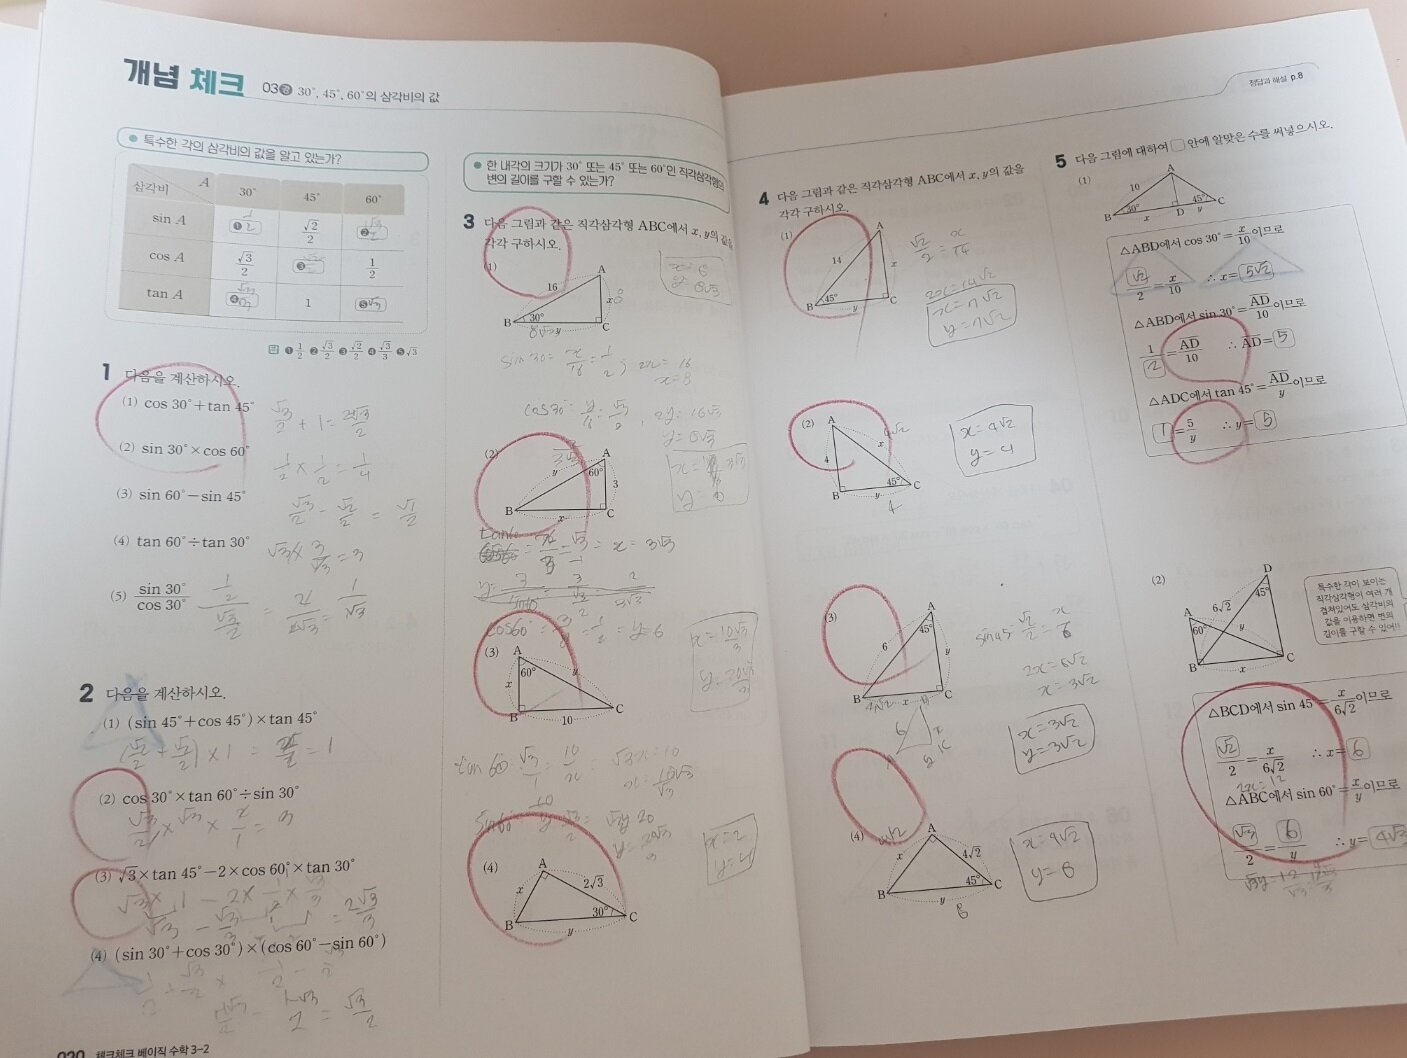 개념 체크
03강 30°, 45°, 60°의 삼각비의 값
특수한 각의 삼각비의 값을 알고 있는가?
삼각비 A 30° 45° 60°
sin A ❶ 1/2 √2/2 ❷ √3/2
cos A √3/2 ❸ 1/2
tan A ❹ 1 ❺ √3
답 ❶ 1/2 ❷ √3/2 ❸ √2/2 ❹ √3/3 ❺ √3
1 다음을 계산하시오.
(1) cos 30°+tan 45°
√3/2 + 1 =
(2) sin 30°×cos 60°
1/2 × 1/2 = 1/4
(3) sin 60°−sin 45°
√3/2 - √2/2 =
(4) tan 60°÷tan 30°
√3 × 3/√3 = 3
(5) sin 30°/cos 30°
= 1/√3
2 다음을 계산하시오.
(1) (sin 45°+cos 45°)×tan 45°
(√2/2 + √2/2) × 1 = = 1
(2) cos 30°×tan 60°÷sin 30°
√3/2 × √3 × 2/1 = 3
(3) √3×tan 45°−2×cos 60°×tan 30°
√3 × 1 - 2 × 1/2 × √3/3
√3 - √3/3 = 2√3/3
(4) (sin 30°+cos 30°)×(cos 60°−sin 60°)
020 체크체크 베이직 수학 3-2
한 내각의 크기가 30° 또는 45° 또는 60°인 직각삼각형의
변의 길이를 구할 수 있는가?
3 다음 그림과 같은 직각삼각형 ABC에서 x, y의 값을
각각 구하시오.
(1)
A
16
x
B 30° C
y
x=8
y=8√3
sin30= x/16 = 1/2 , 2x=16
x=8
cos30= y/16 = √3/2 , 2y=16√3
y=8√3
(2)
A
y 60° 3
B x C
tan60 = x/3 = √3/1 = x=3√3
cos60°= 3/y = 1/2 = y=6
(3)
A
60°
x y
B 10 C
x=10√3/3
y=20√3/3
tan60= √3/1 = 10/x = √3x=10
x=10√3
sin60= 10/y = √3/2 = √3y 20
(4)
A
x 2√3
B 30° C
y
x=2
y=4
4 다음 그림과 같은 직각삼각형 ABC에서 x, y의 값을
각각 구하시오.
(1)
A
14
x
B 45° C
y
√2/2 = x/14
2x=14√2
x=7√2
y=7√2
(2)
A
4 x
45°
B y C
4
x=4√2
y=4
(3)
A
45°
6 y
B x C
sin45= √2/2 = x/6
2x=6√2
x=3√2
x=3√2
y=3√2
(4)
A
x 4√2
B 45° C
y
8
x=4√2
y=8
정답과 해설 p.8
5 다음 그림에 대하여 □ 안에 알맞은 수를 써넣으시오.
(1)
A
10
B 30° x D 45° C
y
△ABD에서 cos 30°=x/10이므로
√2/2=x/10 ∴ x=5√2
△ABD에서 sin 30°=AD/10이므로
1/2=AD/10 ∴ AD=5
△ADC에서 tan 45°=AD/y이므로
1=5/y ∴ y=5
(2)
D
6√2 45°
A
60° y
B x C
특수한 각이 보이는
직각삼각형이 여러 개
겹쳐있어도 삼각비의
값을 이용하면 변의
길이를 구할 수 있어!!
△BCD에서 sin 45°=x/6√2이므로
√2/2=x/6√2 ∴ x=6
2x=12
△ABC에서 sin 60°=x/y이므로
√3/2=6/y ∴ y=4√3
√3y=12